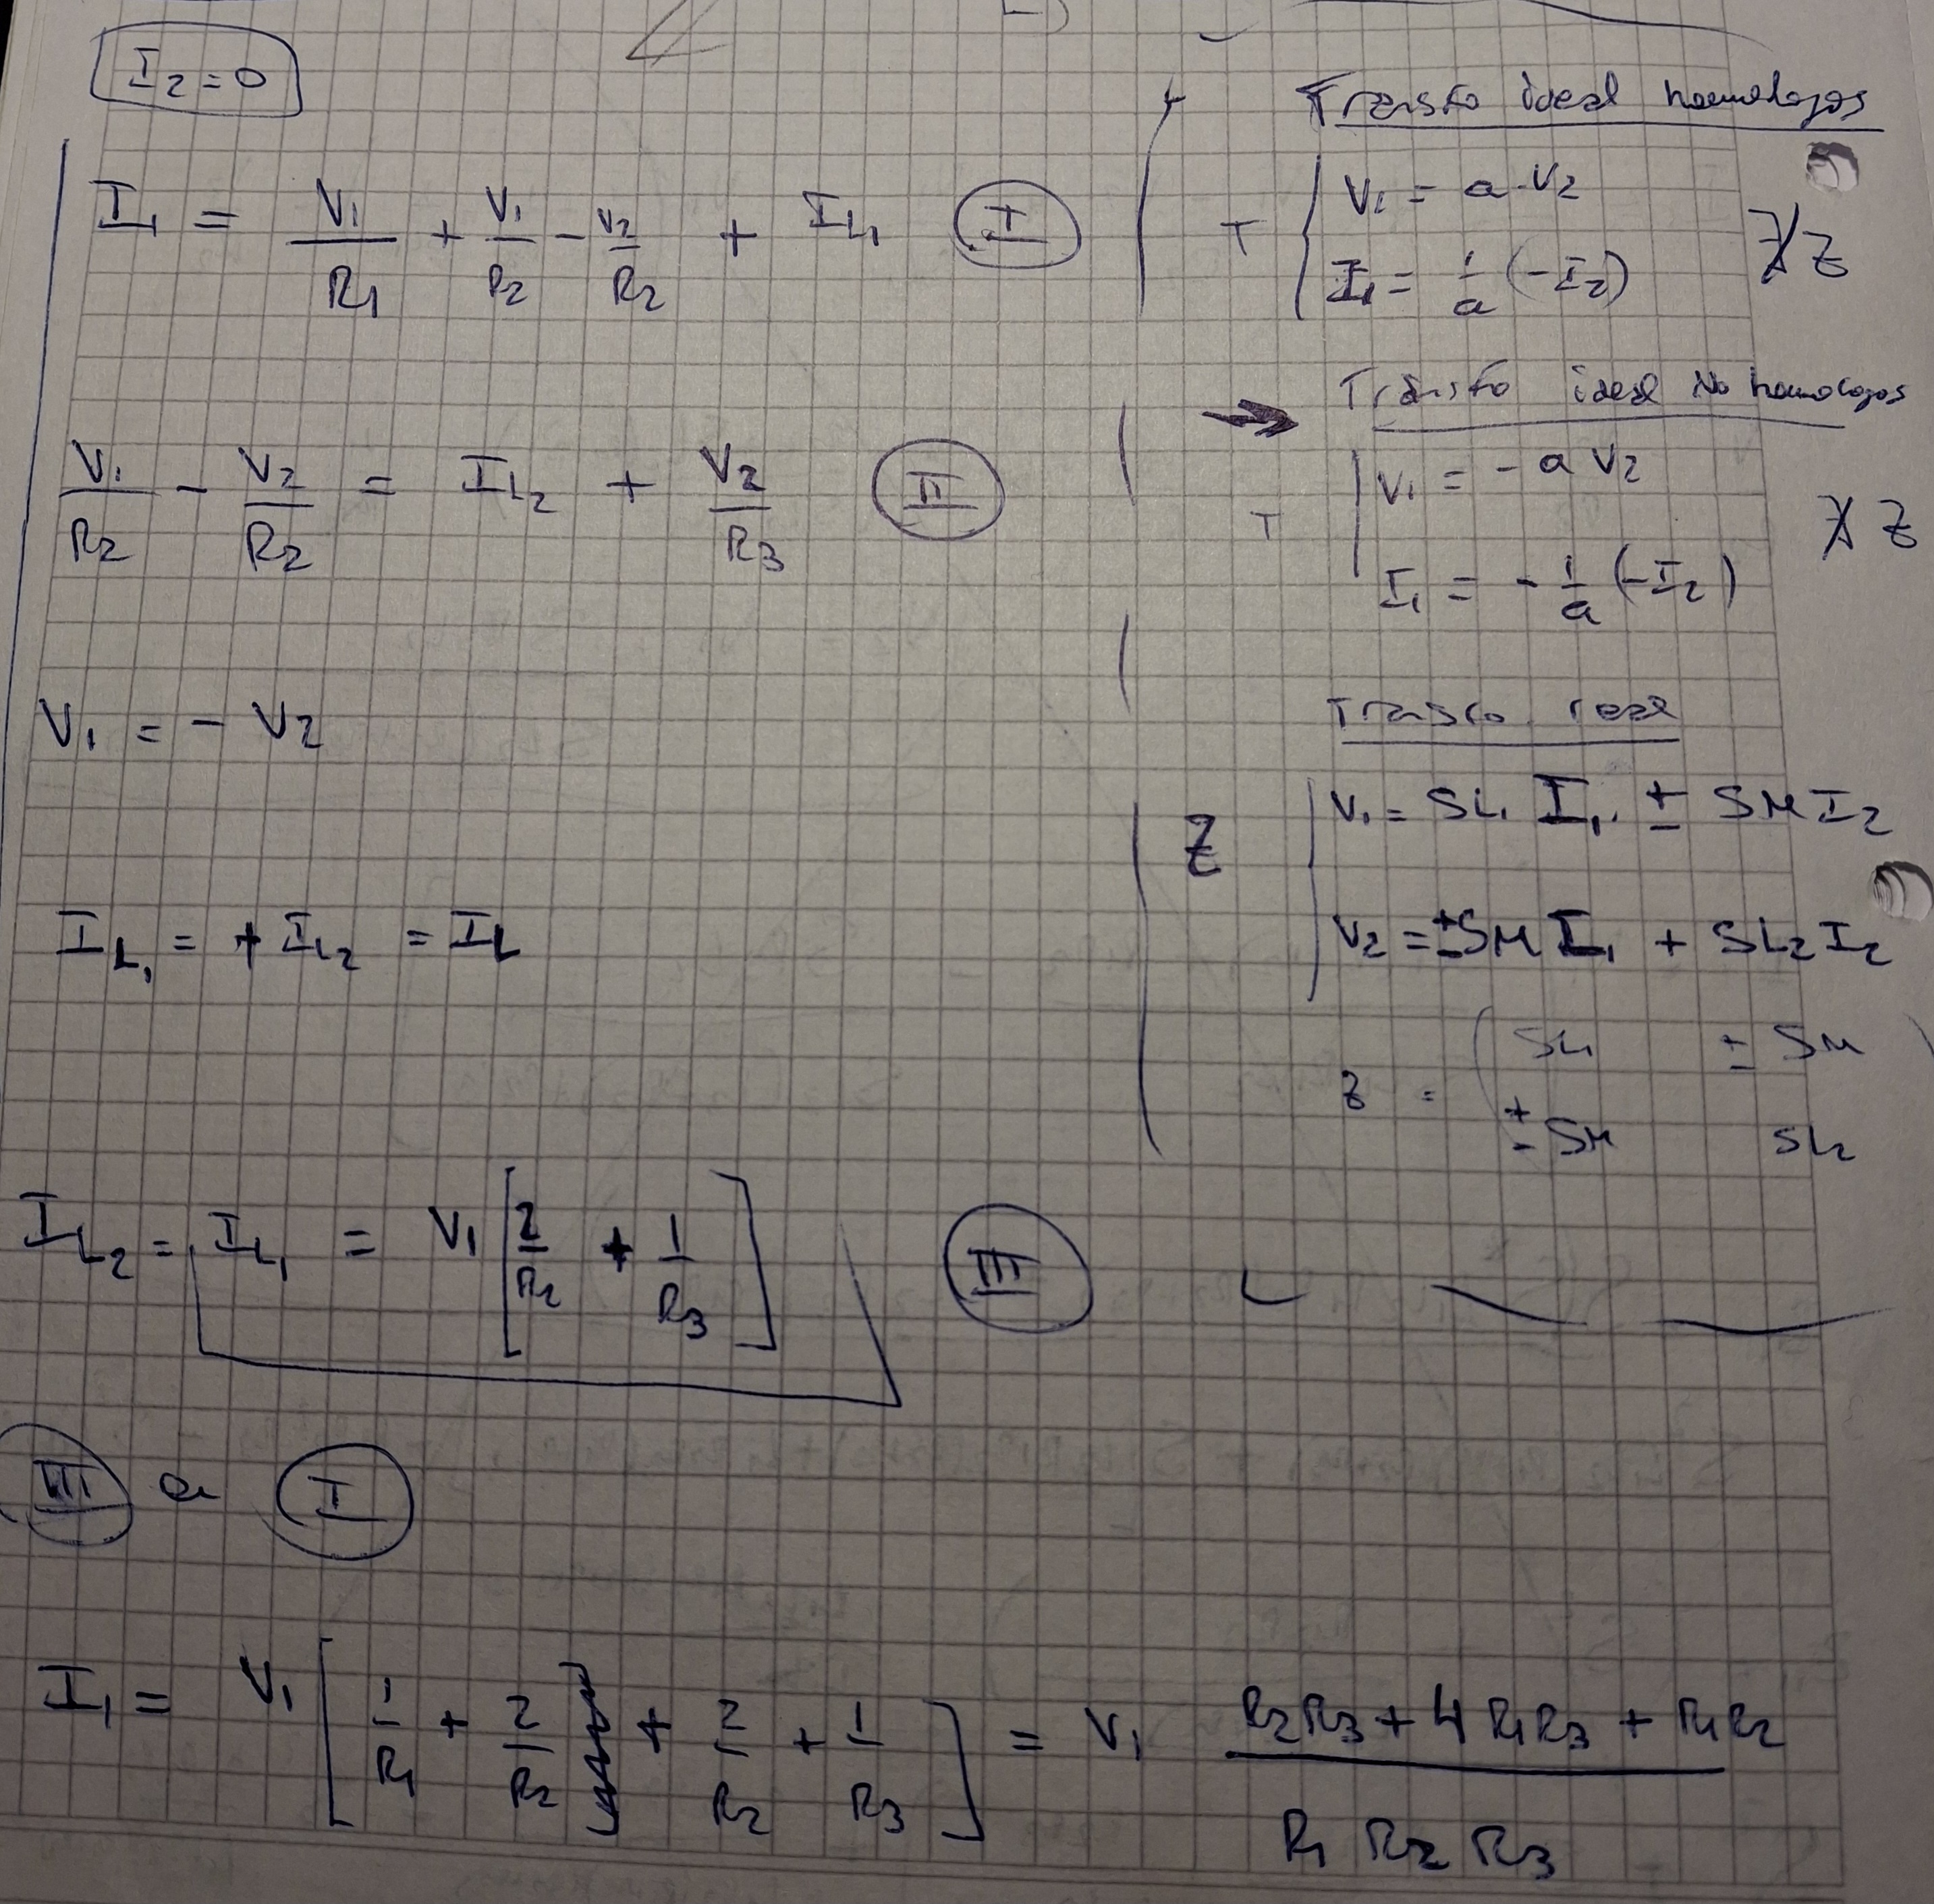 I₂ = 0
I₁ = V₁/R₁ + V₁/R₂ - V₂/R₂ + I_L₁ (I)
V₁/R₂ - V₂/R₂ = I_L₂ + V₂/R₃ (II)
V₁ = - V₂
I_L₁ = + I_L₂ = I_L
I_L₂ = I_L₁ = V₁ [2/R₂ + 1/R₃] (III)
(III) a (I)
I₁ = V₁ [1/R₁ + 2/R₂ + 2/R₂ + 1/R₃] = V₁ (R₂R₃ + 4 R₁R₃ + R₁R₂) / (R₁ R₂ R₃)
Transfo ideal homologos
T { V₁ = a · V₂
I₁ = 1/a (-I₂)
∄ Z
Transfo ideal No homologos
T | V₁ = - a V₂
I₁ = - 1/a (-I₂)
∄ Z
Transfo real
Z | V₁ = SL₁ I₁ ± SM I₂
V₂ = ± SM I₁ + SL₂ I₂
Z = ( SL₁ ± SM
± SM SL₂ )